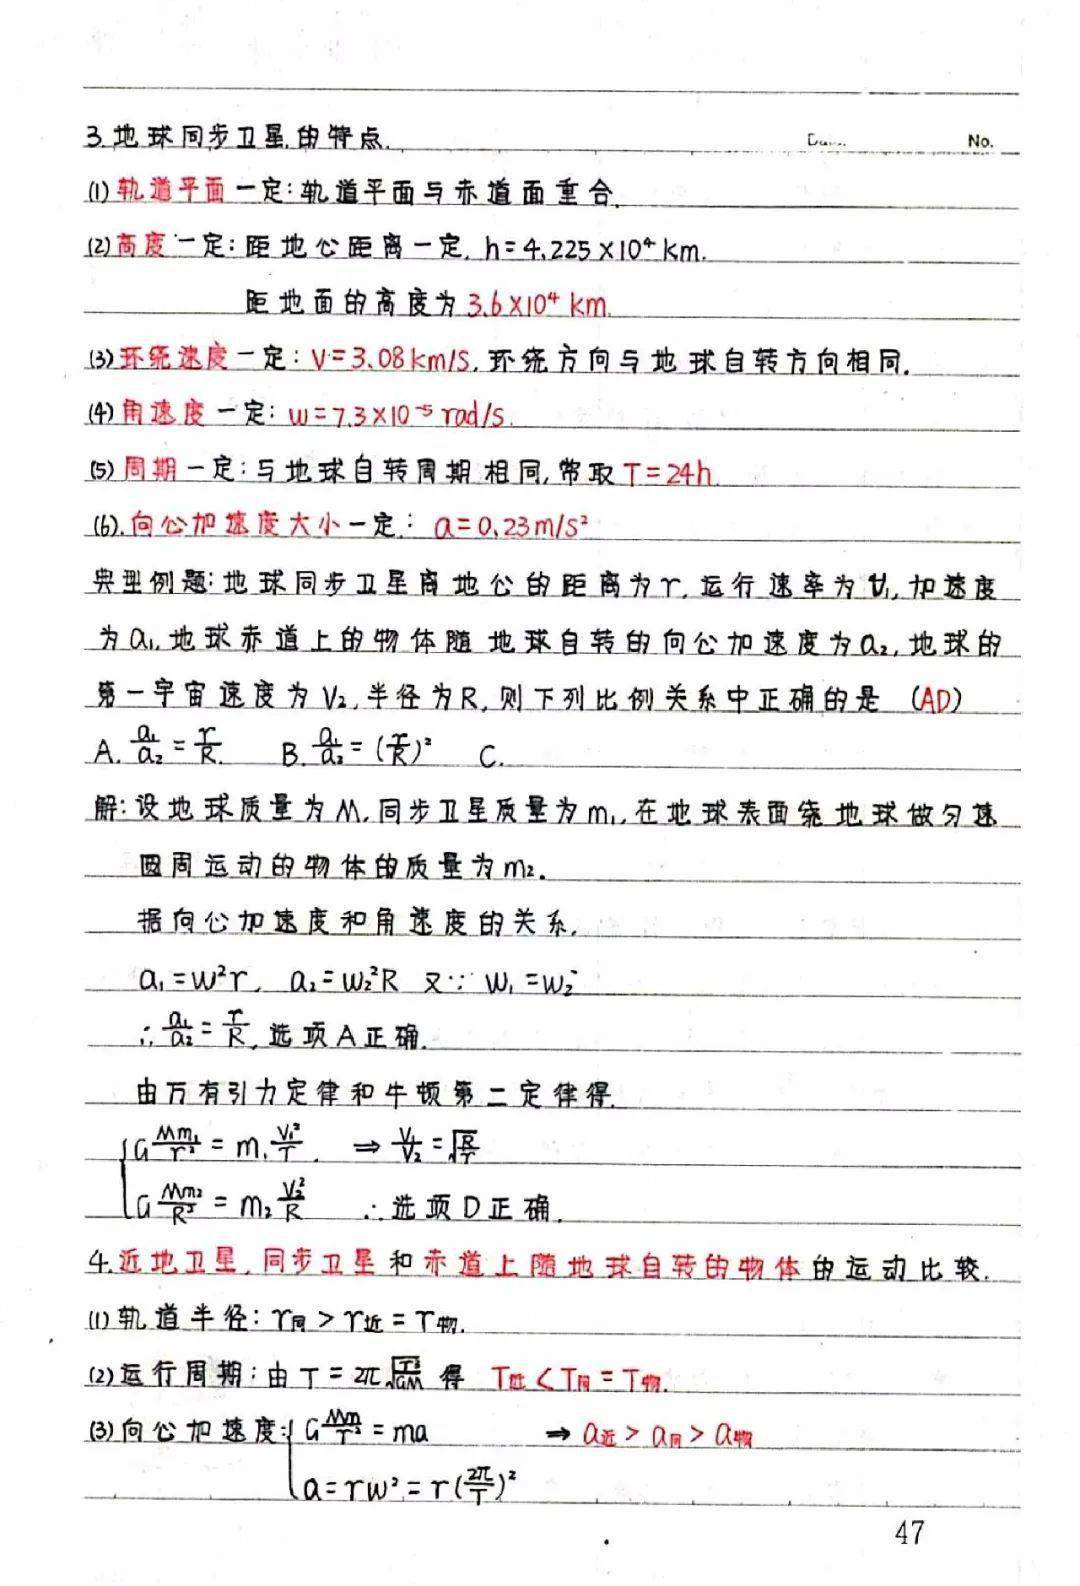 3.地球同步卫星的特点.
No.
(1)轨道平面一定:轨道平面与赤道面重合.
(2)高度一定:距地心距离一定, h=4.225×10⁴ km.
距地面的高度为3.6×10⁴ km.
(3)环绕速度一定:V=3.08km/s,环绕方向与地球自转方向相同.
(4)角速度一定: w=7.3×10⁻⁵ rad/s.
(5)周期一定:与地球自转周期相同,常取T=24h.
(6).向心加速度大小一定: a=0.23m/s²
典型例题:地球同步卫星离地心的距离为r,运行速率为v₁,加速度
为a₁,地球赤道上的物体随地球自转的向心加速度为a₂,地球的
第一宇宙速度为V₂,半径为R,则下列比例关系中正确的是 (AD)
A. a₁/a₂ = r/R. B. a₁/a₂ = (r/R)² C.
解:设地球质量为M,同步卫星质量为m₁,在地球表面绕地球做匀速
圆周运动的物体的质量为m₂.
据向心加速度和角速度的关系,
a₁=w²r, a₂=w₂²R 又∵ w₁=w₂
∴ a₁/a₂ = r/R,选项A正确.
由万有引力定律和牛顿第二定律得.
G Mm₁/r² = m₁ V₁²/r. ⇒ V₁/V₂ = √(R/r)
G Mm₂/R² = m₂ V₂²/R ∴选项D正确.
4.近地卫星,同步卫星和赤道上随地球自转的物体的运动比较.
(1)轨道半径: r同 > r近 = r物.
(2)运行周期:由T=2π√(r³/GM) 得 T近 < T同 = T物.
(3)向心加速度: G Mm/r² = ma ⇒ a近 > a同 > a物
a=rw²=r(2π/T)²
47